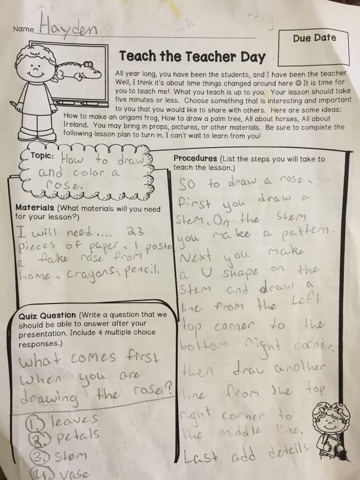 Name Hayden
Due Date
Teach the Teacher Day
All year long, you have been the students, and I have been the teacher.
Well, I think it's about time things changed around here ☺ It is time for
you to teach me! What you teach is up to you. Your lesson should take
five minutes or less. Choose something that is interesting and important
to you that you would like to share with others. Here are some ideas:
How to make an origami frog, How to draw a palm tree, All about horses, All about
Ireland. You may bring in props, pictures, or other materials. Be sure to complete the
following lesson plan to turn in. I can't wait to learn from you!
Topic: How to draw
and color a
rose.
Materials (What materials will you need
for your lesson?)
I will need.... 23
pieces of paper. 1
a fake rose from
home. crayons, pencil.
Quiz Question (Write a question that we
should be able to answer after your
presentation. Include 4 multiple choice
responses.)
What comes first
when you are
drawing the rose?
1. leaves
2. petals
3. stem
4. vase
Procedures (List the steps you will take
to teach the lesson.)
So to draw a rose.
first you draw a
stem. On the stem
you make a pattern.
Next you make
a U shape on the
stem and draw a
line from the Left
top corner to the
bottom right corner.
then draw another
line from the top
right corner to
the middle line.
Last add details